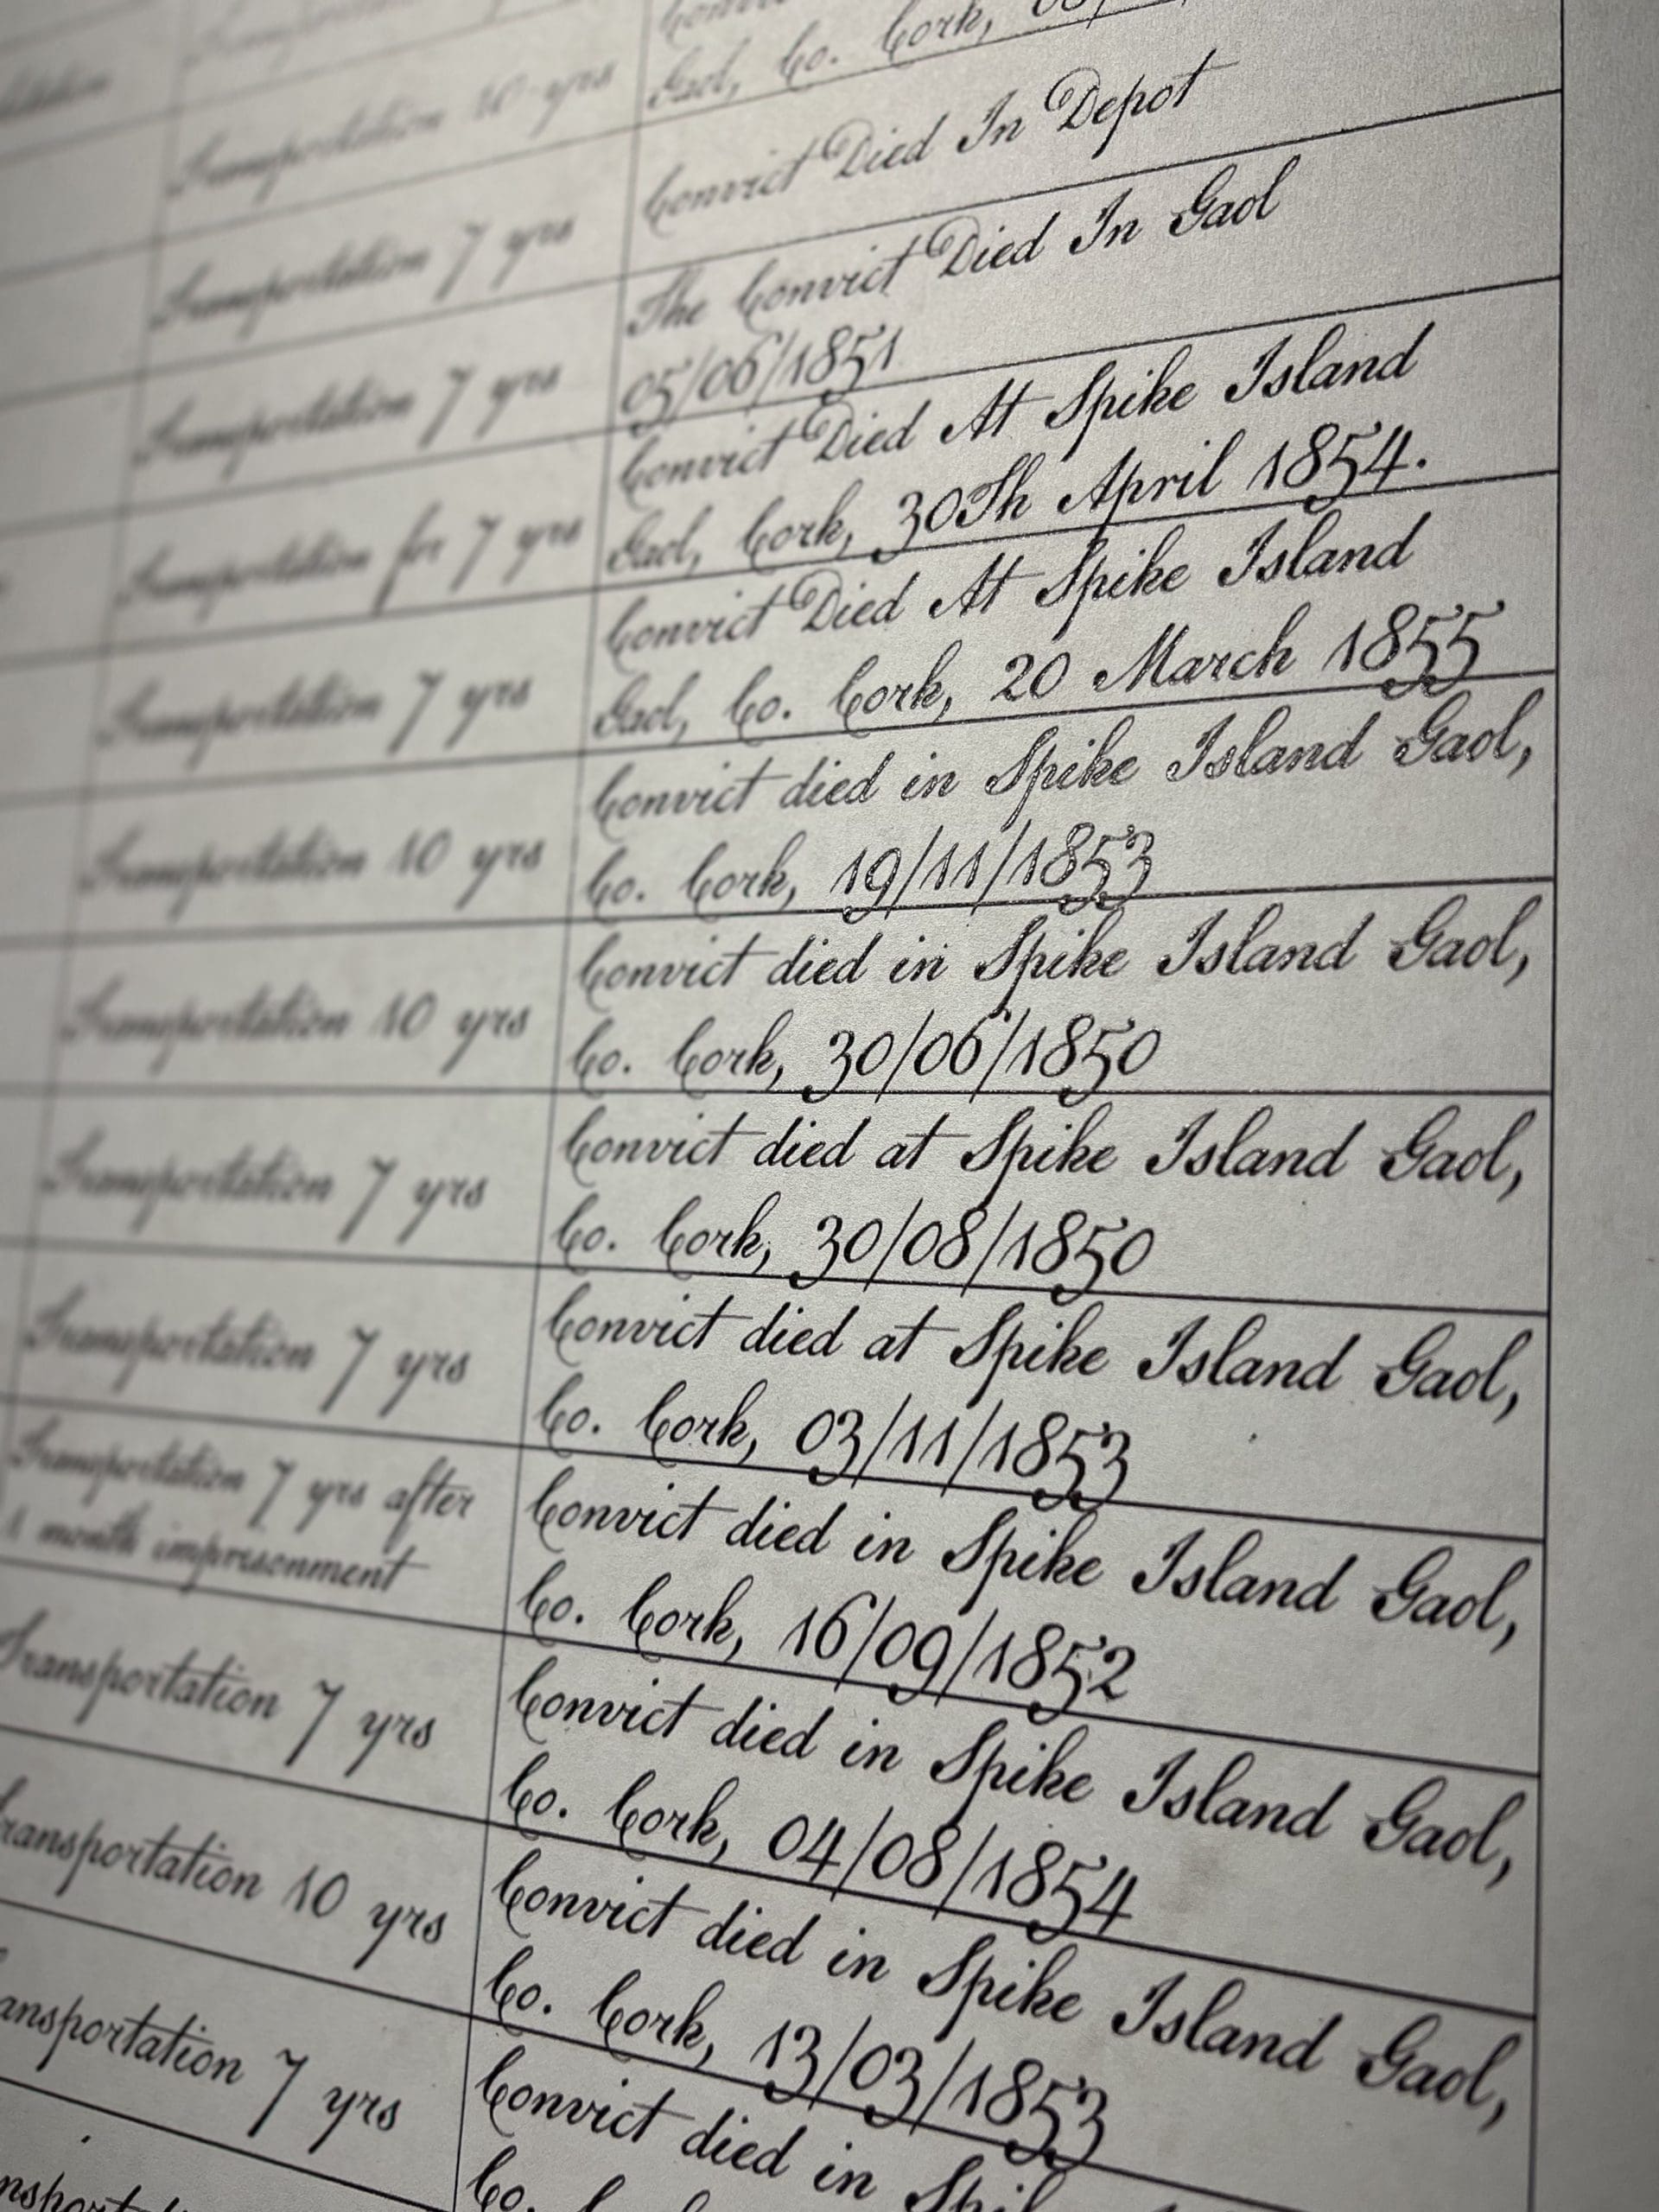 Transportation 10 yrs
Gaol, Co. Cork,
Transportation 7 yrs
Convict Died In Depot
Transportation 7 yrs
The Convict Died In Gaol
05/06/1851
Transportation for 7 yrs
Convict Died At Spike Island
Gaol, Cork, 30Th April 1854.
Transportation 7 yrs
Convict Died At Spike Island
Gaol, Co. Cork, 20 March 1855
Transportation 10 yrs
Convict died in Spike Island Gaol,
Co. Cork, 19/11/1853
Transportation 10 yrs
Convict died in Spike Island Gaol,
Co. Cork, 30/06/1850
Transportation 7 yrs
Convict died at Spike Island Gaol,
Co. Cork, 30/08/1850
Transportation 7 yrs
Convict died at Spike Island Gaol,
Co. Cork, 03/11/1853
Transportation 7 yrs after
1 month imprisonment
Convict died in Spike Island Gaol,
Co. Cork, 16/09/1852
Transportation 7 yrs
Convict died in Spike Island Gaol,
Co. Cork, 04/08/1854
ransportation 10 yrs
Convict died in Spike Island Gaol,
Co. Cork, 13/03/1853
ansportation 7 yrs
Convict died in
Co.